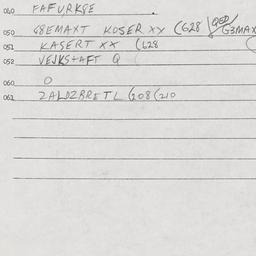 040 FAFURK8E
050 G8EMAXT KOSER XY (628
051 KASERT XX (628
052 VEJKSTAFT Q
060 O
061 2ALDZBRETL (208 (210